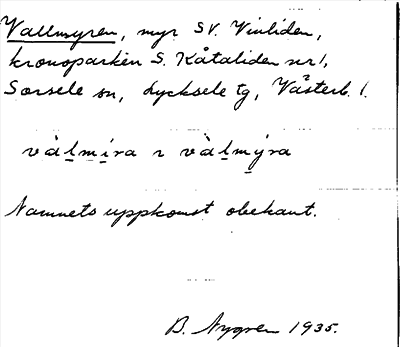 Vallmyren, myr SV. Vinliden,
kronoparken S. Kåtaliden nr 1,
Sorsele sn, Lycksele tg, Västerb. l.
vàl̲mi̲ra ɿ vàl̲my̲ra
Namnets uppkomst obekant.
B. Nygren 1935.